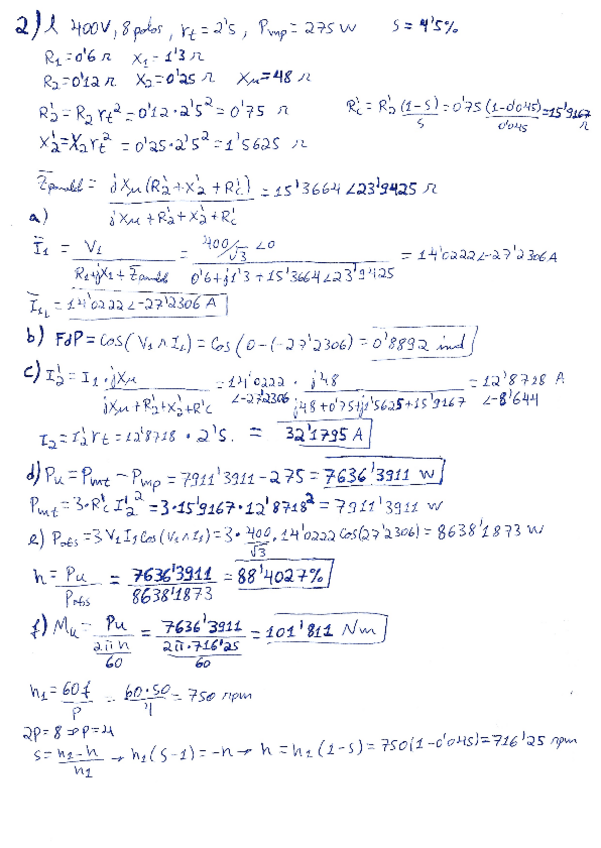 2) λ 400V, 8 polos, rt = 2'5, Pmp = 275 W   S = 4'5%
R1 = 0'6 Ω   X1 = 1'3 Ω
R2 = 0'12 Ω   X2 = 0'25 Ω   Xμ = 48 Ω
R'2 = R2 rt² = 0'12 · 2'5² = 0'75 Ω   R'c = R'2 (1-S)/S = 0'75 (1-0'045)/0'045 = 15'9167 Ω
X'2 = X2 rt² = 0'25 · 2'5² = 1'5625 Ω
Z̄paralel = jXμ (R'2 + X'2 + R'c) / jXμ + R'2 + X'2 + R'c = 15'3664 ∠23'9425 Ω
a)
Ī1 = V1 / R1 + jX1 + Z̄paralel = 400/√3 ∠0 / 0'6 + j1'3 + 15'3664 ∠23'9425 = 14'0222 ∠-27'2306 A
Ī1L = 14'0222 ∠-27'2306 A
b) FdP = Cos (V1 ∧ I1) = Cos (0-(-27'2306) = 0'8892 ind
c) I'2 = I1 · jXμ / jXμ + R'2 + X'2 + R'c = 14'0222 ∠-27'2306 · j48 / j48 + 0'75 + j1'5625 + 15'9167 = 12'8718 A ∠-8'644
I2 = I'2 rt = 12'8718 · 2'5. = 32'1795 A
d) Pu = Pmt - Pmp = 7911'3911 - 275 = 7636'3911 W
Pmt = 3 · R'c I'2² = 3 · 15'9167 · 12'8718² = 7911'3911 W
e) Pabs = 3 V1 I1 Cos (V1 ∧ I1) = 3 · 400/√3 · 14'0222 Cos(27'2306) = 8638'1873 W
h = Pu / Pabs = 7636'3911 / 8638'1873 = 88'4027%
f) Mu = Pu / 2π n/60 = 7636'3911 / 2π · 716'25/60 = 101'811 Nm
n1 = 60f / P = 60 · 50 / 4 = 750 rpm
2P = 8 ⇒ P = 4
S = n1 - n / n1 → n1 (S-1) = -n → n = n1 (1-S) = 750 (1-0'045) = 716'25 rpm